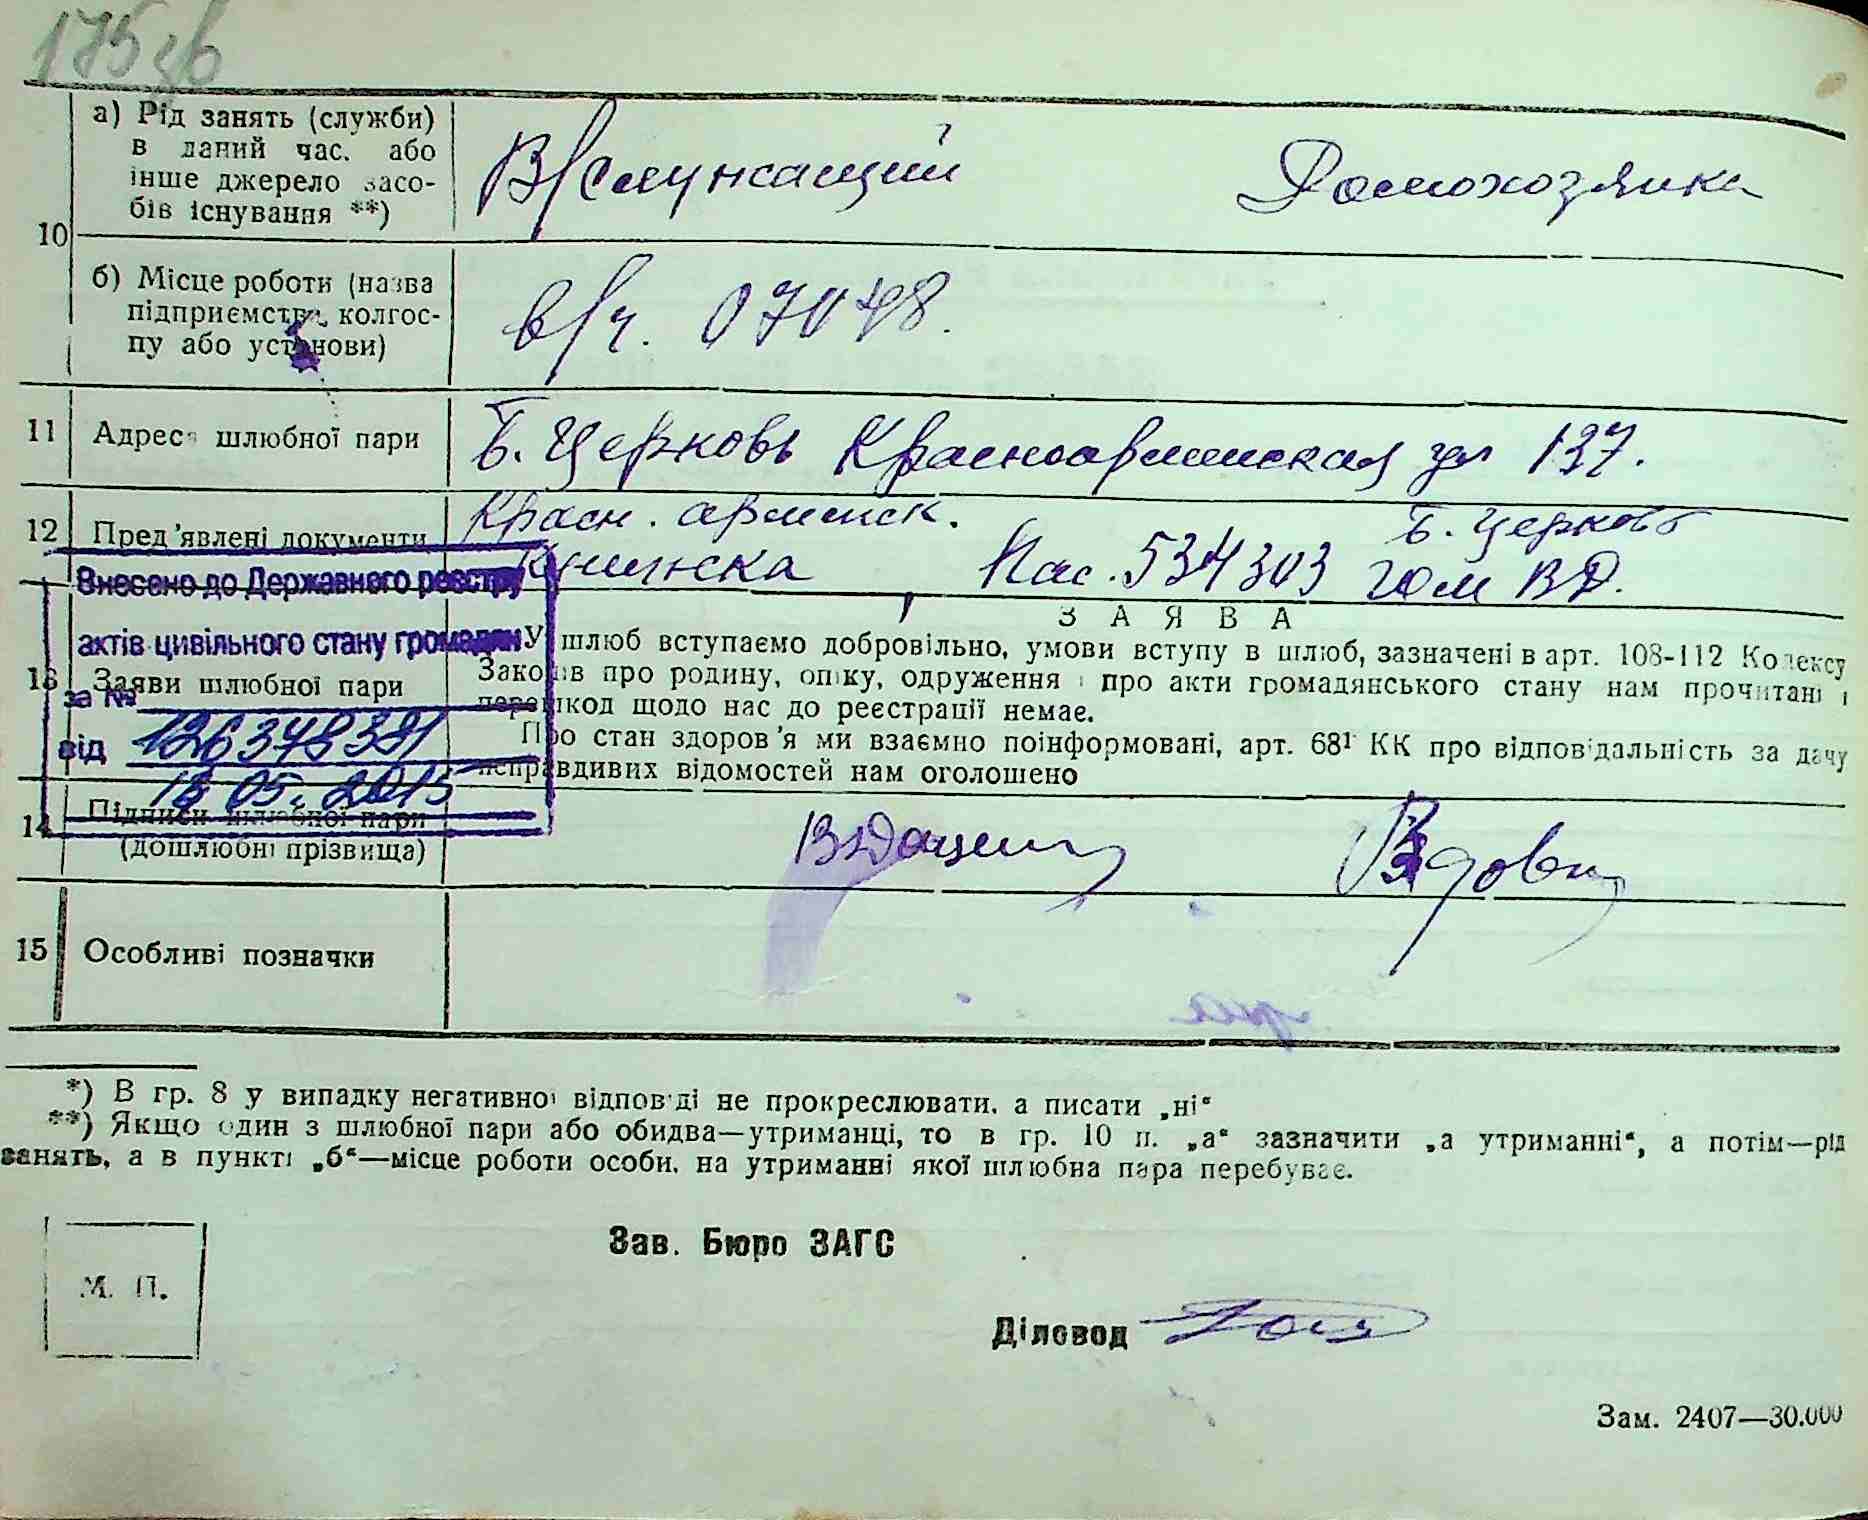 175 зв
а) Рід занять (служби)
в даний час. або
інше джерело засо-
бів існування **)
В/служащий Домохозяйка
10
б) Місце роботи (назва
підприємства, колгос-
пу або установи)
в/ч. 07048.
11 Адреса шлюбної пари Б. Церковь Красноармейская ул 137.
12 Пред'явлені документи
Красн. армейск. Б. Церковь
книжка Пас. 534303 ГОМ ВД.
Внесено до Державного реєстру
актів цивільного стану громадян
за №
126348381
від
18 05. 2015
13 Заяви шлюбної пари
ЗАЯВА
У шлюб вступаємо добровільно, умови вступу в шлюб, зазначені в арт. 108-112 Кодексу
Законів про родину, опіку, одруження і про акти громадянського стану нам прочитані і
перешкод щодо нас до реєстрації немає.
Про стан здоров'я ми взаємно поінформовані, арт. 68¹ КК про відповідальність за дачу
неправдивих відомостей нам оголошено
14 Підписи шлюбної пари
(дошлюбні прізвища)
15 Особливі позначки
*) В гр. 8 у випадку негативної відповіді не прокреслювати. а писати „ні“
**) Якщо один з шлюбної пари або обидва—утриманці, то в гр. 10 п. „а“ зазначити „а утриманні“, а потім—рід
занять, а в пункті „б“—місце роботи особи. на утриманні якої шлюбна пара перебуває.
Зав. Бюро ЗАГС
М. П.
Діловод
Зам. 2407—30.000